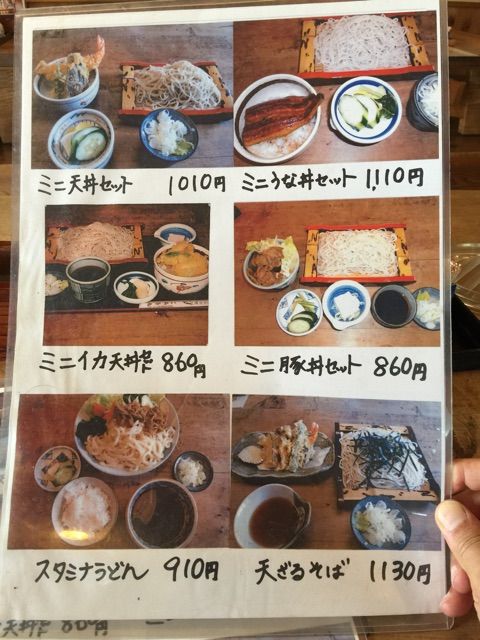 ミニ天丼セット 1010円
ミニうな丼セット 1,110円
ミニイカ天丼セット 860円
ミニ豚丼セット 860円
スタミナうどん 910円
天ざるそば 1130円
天丼セット 860円